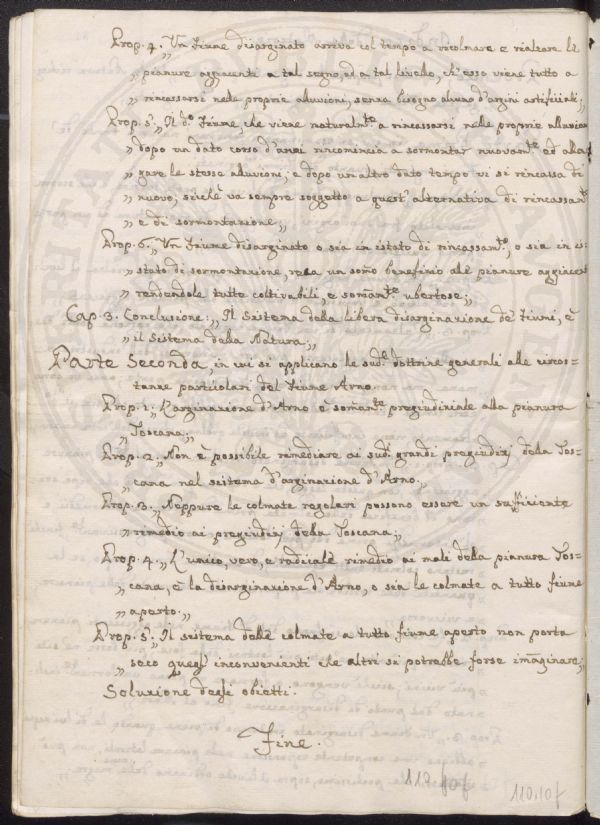 Prop. 4. „Un fiume disarginato arriva col tempo a ricolmare e rialzare le
„ pianure aggiacenti a tal segno, ed a tal livello, ch'esso viene tutto a
„ rincassarsi nelle proprie alluvioni, senza bisogno alcuno d'argini artificiali;„
Prop. 5.ª „Il d.º fiume, che viene naturalm.te a rincassarsi nelle proprie alluvioni
„ dopo un dato corso d'anni rincomincia a sormontar nuovam.te ed alla
„ gare le stesse alluvioni; e dopo un altro dato tempo vi si rincassa di
„ nuovo; sicchè va sempre soggetto a quest'alternativa di rincassam.to
„ e di sormontazione„
Prop. 6. „Un fiume disarginato o sia in istato di rincassam.to, o sia in is-
„ stato di sormontazione, reca un som̃o beneficio alle pianure aggiacenti
„ rendendole tutte coltivabili, e som̃am.te ubertose;„
Cap. 3. Conclusione: „Il sistema della libera disarginazione de' fiumi, è
„ il sistema della Natura;„
Parte Seconda, in cui si applicano le sud.e dottrine generali alle circos-
tanze particolari del fiume Arno.
Prop. 1: L'arginazione d'Arno è som̃am.te pregiudiziale alla pianura
„ Toscana;„
Prop. 2. „Non è possibile rimediare ai sud.i grandi pregiudizj della Tos-
cana nel scistema d'arginazione d'Arno.„
Prop. 3. „Neppure le colmate regolari possono essere un sufficiente
„ rimedio ai pregiudizj della Toscana„
Prop. 4. „L'unico, vero, e radicale rimedio ai mali della pianura Tos-
„ cana, è la disarginazione d'Arno, o sia le colmate a tutto fiume
„ aperto.„
Prop. 5.ª „Il sistema delle colmate a tutto fiume aperto non porta
„ seco quegl'inconvenienti che altri si potrebbe forse im̃aginare;
Soluzione degli obietti.
Fine.
110 107
110.107